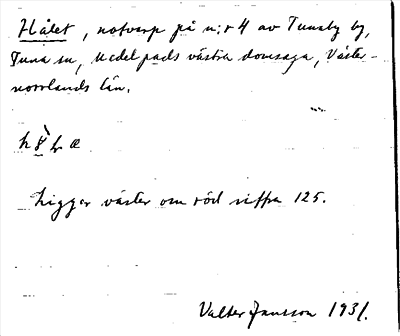 Hålet, notvarp på n:r 4 av Tunaby by,
Tuna sn, Medelpads västra domsaga, Väster-
norrlands län.
Ligger väster om röd siffra 125.
Valter Jansson 1931.